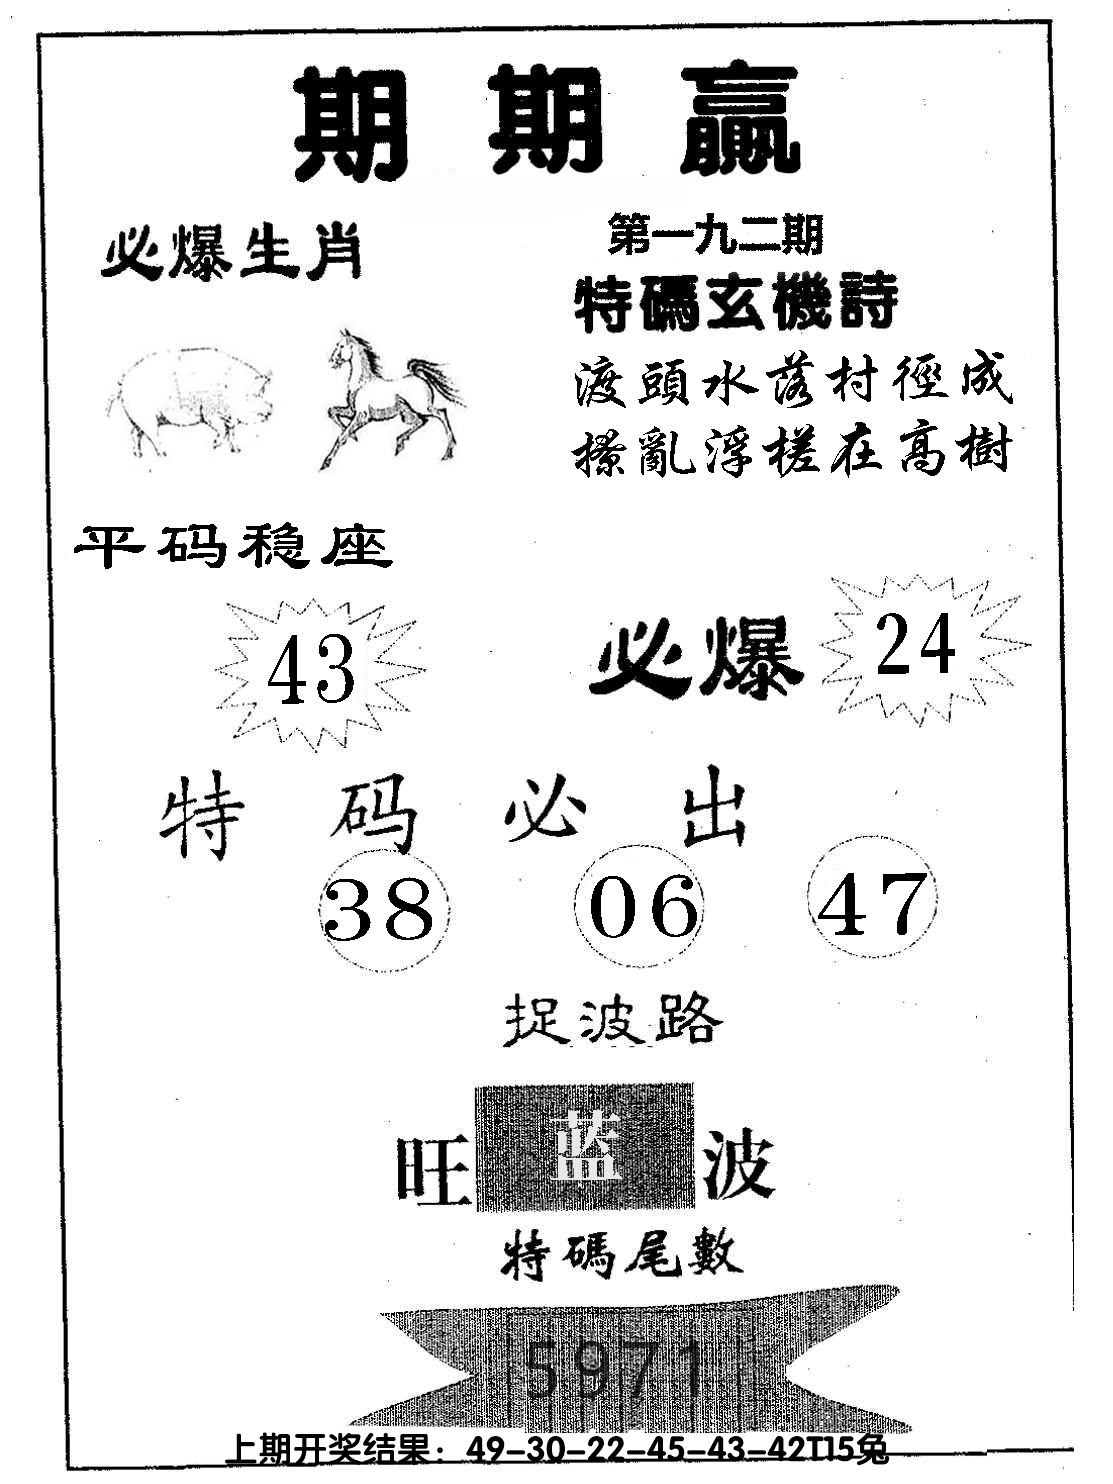 期期贏
必爆生肖
第一九二期
特碼玄機詩
渡頭水落村徑成
撩亂浮槎在高樹
平码稳座
43
必爆
24
特码必出
38 06 47
捉波路
旺蓝波
特碼尾數
5971
上期开奖结果：49-30-22-45-43-42T15兔